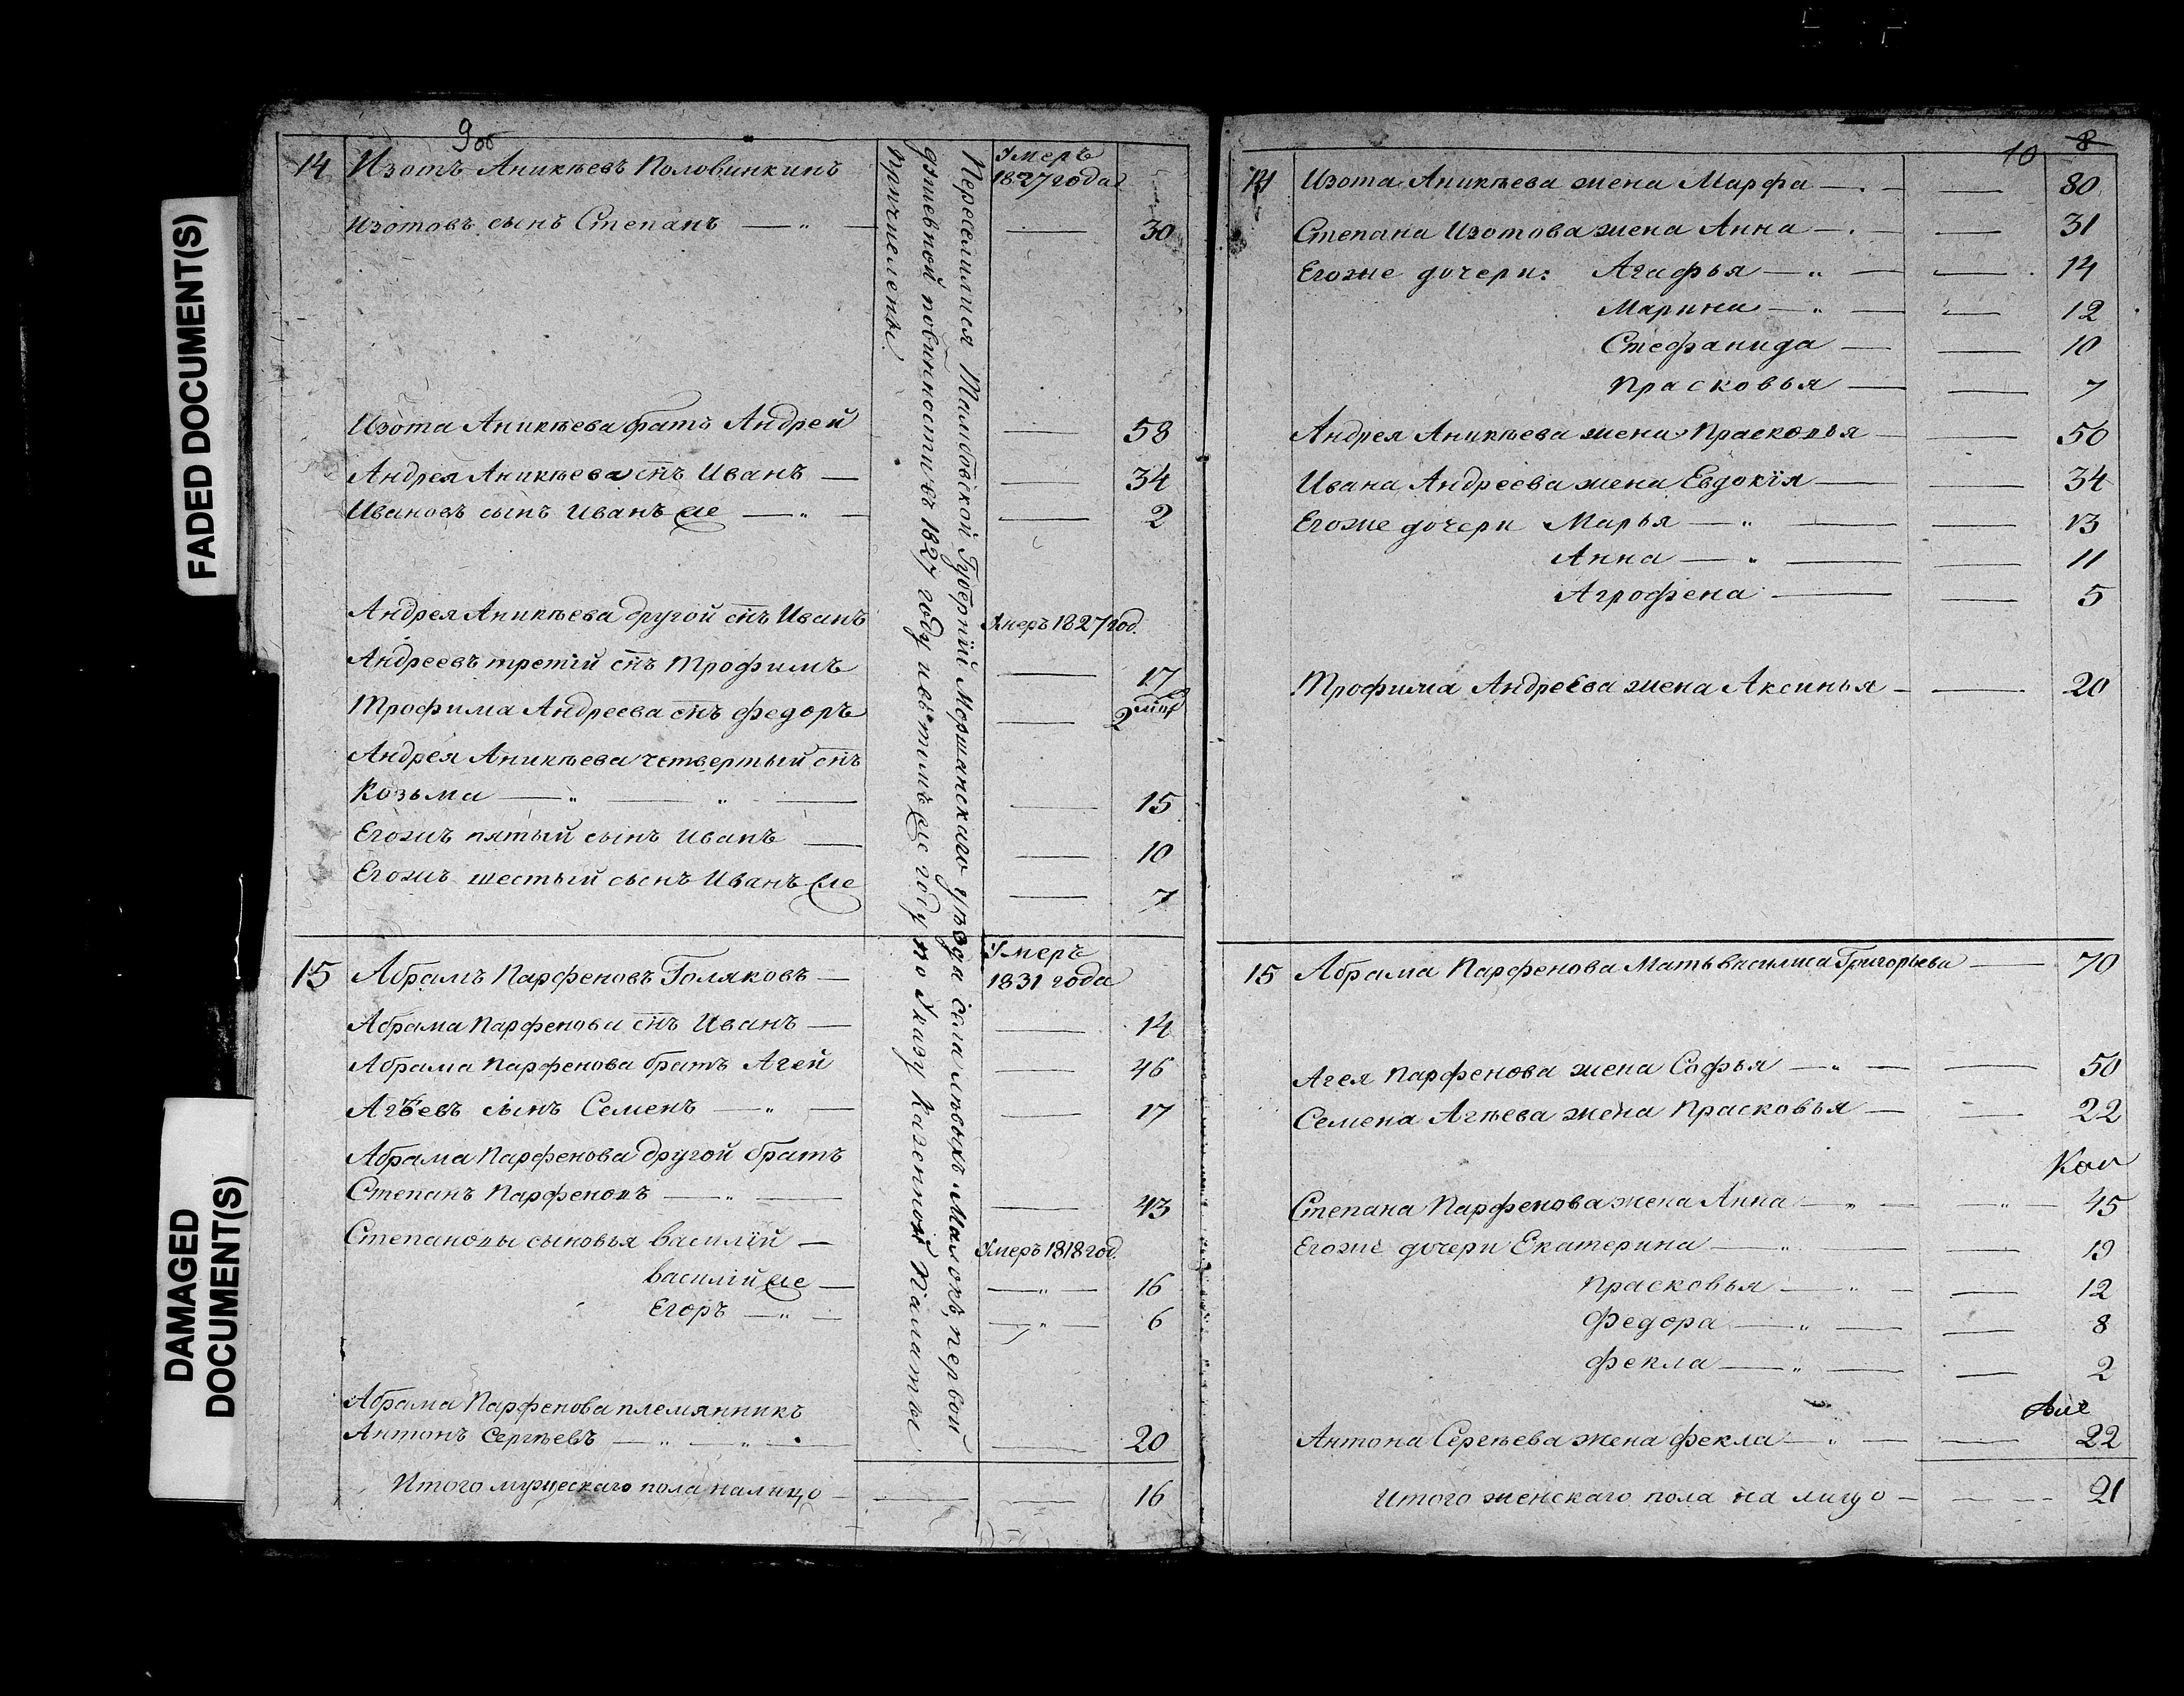 FADED DOCUMENT(S)
DAMAGED
DOCUMENT(S)
9об
14 Изотъ Аникѣевъ Половинкинъ Умеръ
1827 года
Изотовъ сынъ Степанъ — „ — — 30
Изота Аникѣева братъ Андрей — 58
Андрея Аникѣева снъ Иванъ — — 34
Ивановъ сынъ Иванъ же — „ — — 2
Андрея Аникѣева другой снъ Иванъ Умеръ 1827 год.
Андреевъ третій снъ Трофимъ — 17
Трофима Андреева снъ Федоръ — 2
Андрея Аникѣева четвертый снъ
Козьма — „ — „ — — 15
Егожъ пятый сынъ Иванъ — — 10
Егожъ шестый сынъ Иванъ же — 7
Переселился Тамбовской Губерніи Моршанскаго уѣзда села первой
душевной повинности въ 1827 году и въ томъ же году по Указу Казенной Палаты
причислены
15 Абрамъ Парфеновъ Голяковъ — Умеръ
1831 года
Абрама Парфенова снъ Иванъ — — 14
Абрама Парфенова братъ Агей — 46
Агѣевъ сынъ Семенъ — „ — — 17
Абрама Парфенова другой братъ
Степанъ Парфеновъ — „ — — 43
Степановы сыновья Василій — Умеръ 1818 год.
Василій же — — „ — 16
Егоръ — „ — — „ — 6
Абрама Парфенова племянникъ
Антонъ Сергѣевъ — „ — „ — — 20
Итого мужескаго пола налицо — — — 16
10 8
14 Изота Аникѣева жена Марфа — . — — 80
Степана Изотова жена Анна — . — — 31
Егоже дочери: Агафья — „ — — 14
Марина — „ — — 12
Стефанида — — 10
Прасковья — — 7
Андрея Аникѣева жена Прасковья — — 50
Ивана Андреева жена Евдокія — — 34
Егоже дочери Марья — „ — — 13
Анна — „ — — 11
Агрофена — — 5
Трофима Андреева жена Аксинья — — 20
15 Абрама Парфенова Мать Василиса Григорьева — 70
Агея Парфенова жена Софья — „ — — 50
Семена Агѣева жена Прасковья — — 22
Степана Парфенова жена Анна — „ — — „ — 45
Егоже дочери Екатерина — „ — — 19
Прасковья — „ — — 12
Федора — „ — — 8
Фекла — „ — — 2
Антона Сергѣева жена Фекла — „ — — 22
Итого женскаго пола на лицо — — — 21